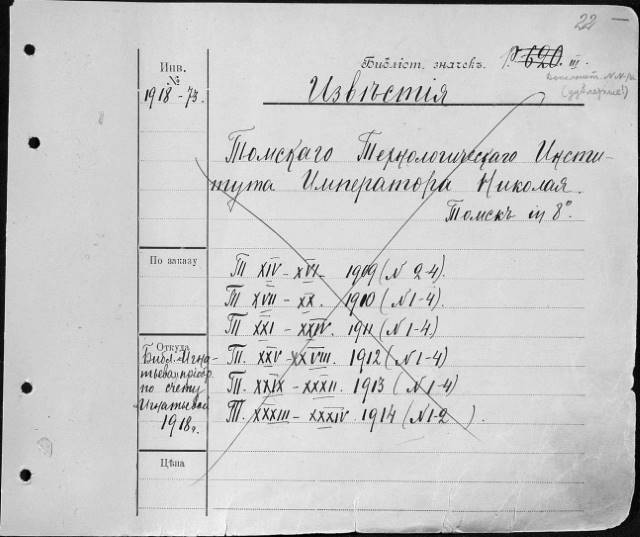 22 —
Инв.
№
1918 - 73.
Библіот. значекъ. P 620 III.
(дублеты!)
Извѣстія
Томскаго Технологическаго Инсти-
тута Императора Николая.
Томскъ in 8°.
По заказу
Т XIV - XVI. 1909 (N 2-4).
Т XVII - XX. 1910 (N 1-4).
Т XXI - XXIV. 1911 (N 1-4)
Откуда
Библ. Игна-
тьева приобр.
по счету
Игнатьевой
1918 г.
Т. XXV - XXVIII. 1912 (N 1-4)
Т. XXIX - XXXII. 1913 (N 1-4)
Т. XXXIII - XXXIV. 1914 (N 1-2).
Цѣна